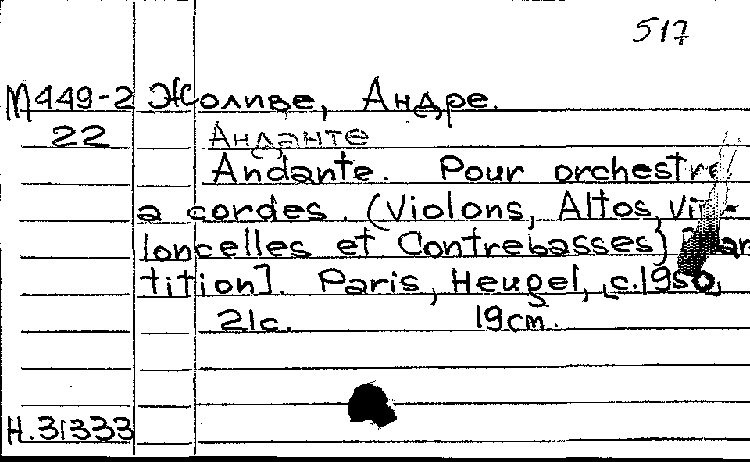 517
М449-2 Жоливе, Андре.
22 Анданте
Andante. Pour orchestre
a cordes. (Violons, Altos,
loncelles et Contrebasses)
tition]. Paris, Heugel, c.1950,
21с. 19cm.
Н.31333